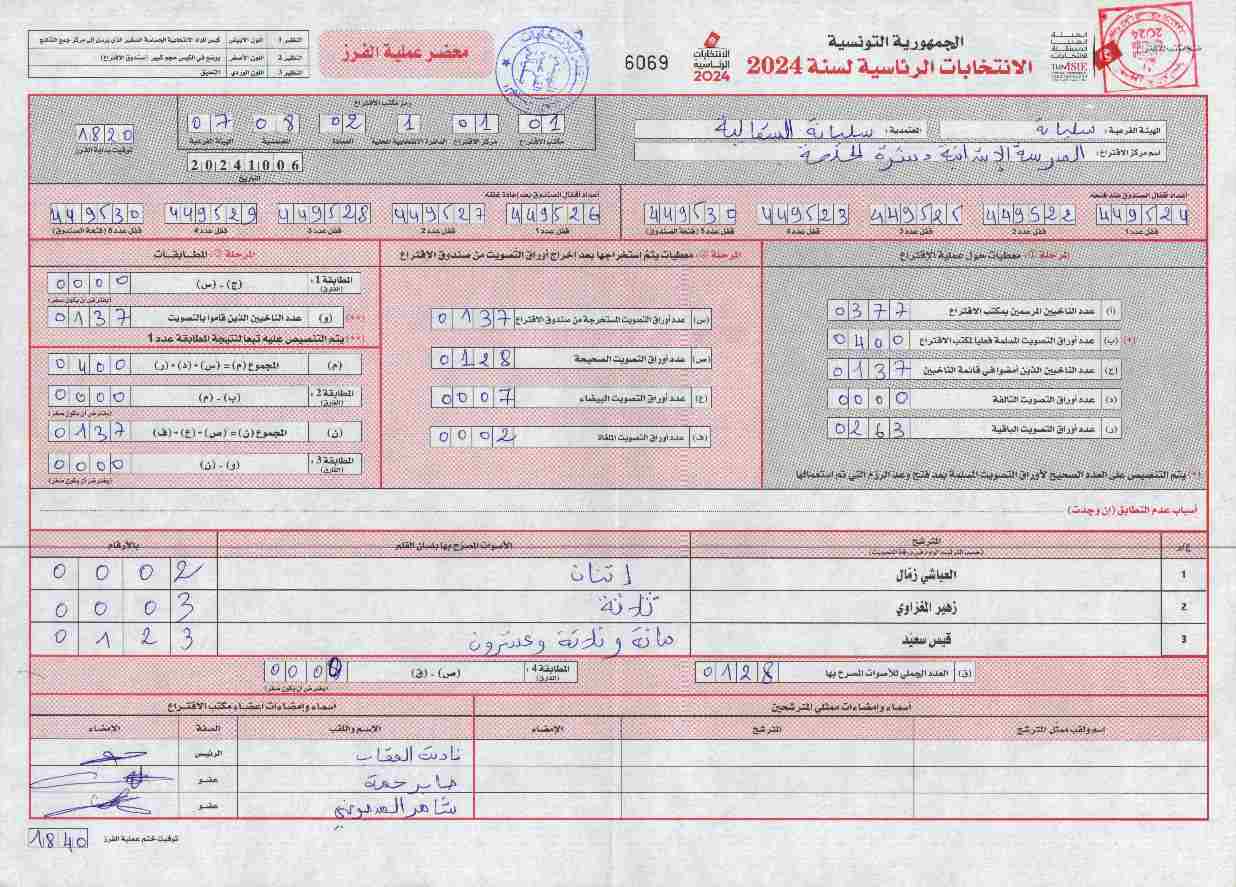 الجمهورية التونسية
الانتخابات الرئاسية لسنة 2024
الانتخابات الرئاسية 2024
6069
محضر عملية الفرز
النظير 1 اللون الأبيض
النظير 2 اللون الأصفر يوضع في الكيس حجم كبير (صندوق الاقتراع)
النظير 3 اللون الوردي التعليق
الهيئة الفرعية: سليانة
المعتمدية: سليانة
اسم مركز الاقتراع: المدرسة الإبتدائية
رمز مكتب الاقتراع
01 01 1 02 08 07
مكتب الاقتراع مركز الاقتراع الدائرة الانتخابية المحلية العمادة المعتمدية الهيئة الفرعية
20241006
التاريخ
1820
توقيت بداية الفرز
أعداد أقفال الصندوق عند فتحه
449524 449522 449525 449523 449530
قفل عدد 1 قفل عدد 2 قفل عدد 3 قفل عدد 4 قفل عدد 5 (فتحة الصندوق)
أعداد أقفال الصندوق بعد إعادة غلقه
449526 449527 449528 449529 449530
قفل عدد 1 قفل عدد 2 قفل عدد 3 قفل عدد 4 قفل عدد 5 (فتحة الصندوق)
المرحلة ①: معطيات حول عملية الاقتراع
(أ) عدد الناخبين المرسمين بمكتب الاقتراع 0377
(*) (ب) عدد أوراق التصويت المسلمة فعليا لمكتب الاقتراع 0400
(ج) عدد الناخبين الذين أمضوا في قائمة الناخبين 0137
(د) عدد أوراق التصويت التالفة 0000
(ر) عدد أوراق التصويت الباقية 0263
(*) يتم التنصيص على العدد الصحيح لأوراق التصويت المسلمة بعد فتح وعد الرزم التي تم استعمالها
المرحلة ②: معطيات يتم إستخراجها بعد إخراج أوراق التصويت من صندوق الاقتراع
(س) عدد أوراق التصويت المستخرجة من صندوق الاقتراع 0137
(ص) عدد أوراق التصويت الصحيحة 0128
(ع) عدد أوراق التصويت البيضاء 0007
(ف) عدد أوراق التصويت الملغاة 0002
المرحلة ③: المطابقات
المطابقة 1: (الفارق) (ج) - (س) 0000
(يفترض أن يكون صفر)
(**) (و) عدد الناخبين الذين قاموا بالتصويت 0137
(**) يتم التنصيص عليه تبعا لنتيجة المطابقة عدد 1
(م) المجموع (م) = (س) + (د) + (ر) 0400
المطابقة 2: (الفارق) (ب) - (م) 0000
(يفترض أن يكون صفر)
(ن) المجموع (ن) = (ص) + (ع) + (ف) 0137
المطابقة 3: (الفارق) (و) - (ن) 0000
(يفترض أن يكون صفر)
أسباب عدم التطابق (إن وجدت)
ع/ر المترشح الأصوات المصرح بها بلسان القلم بالأرقام
(حسب الترتيب الوارد في ورقة التصويت)
1 العياشي زمّال إثنان 0002
2 زهير المغزاوي ثلاثة 0003
3 قيس سعيّد مائة وثلاثة وعشرون 0123
(ق) العدد الجملي للأصوات المصرح بها 0128
المطابقة 4: (الفارق) (ص) - (ق) 0000
(يفترض أن يكون صفر)
أسماء وإمضاءات ممثلي المترشحين
اسم ولقب ممثل المترشح المترشح الإمضاء
أسماء وإمضاءات أعضاء مكتب الاقتراع
الاسم واللقب الصفة الإمضاء
الرئيس
صابر عضو
عضو
توقيت ختم عملية الفرز 1840